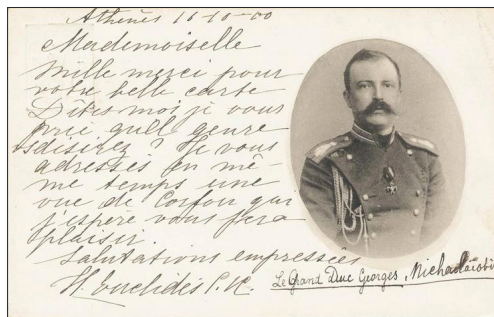 Athènes 16-10-00
Mademoiselle
Mille merci pour
votre belle carte
Dîtes moi je vous
prie quell genre
desirez ? Je vous
adresses en mê-
me temps une
vue de Corfou qui
j'espere vous fera
plaisir.
Salutations empressées
Euclidès P.
Le Grand Duc Georges Michaïlovi